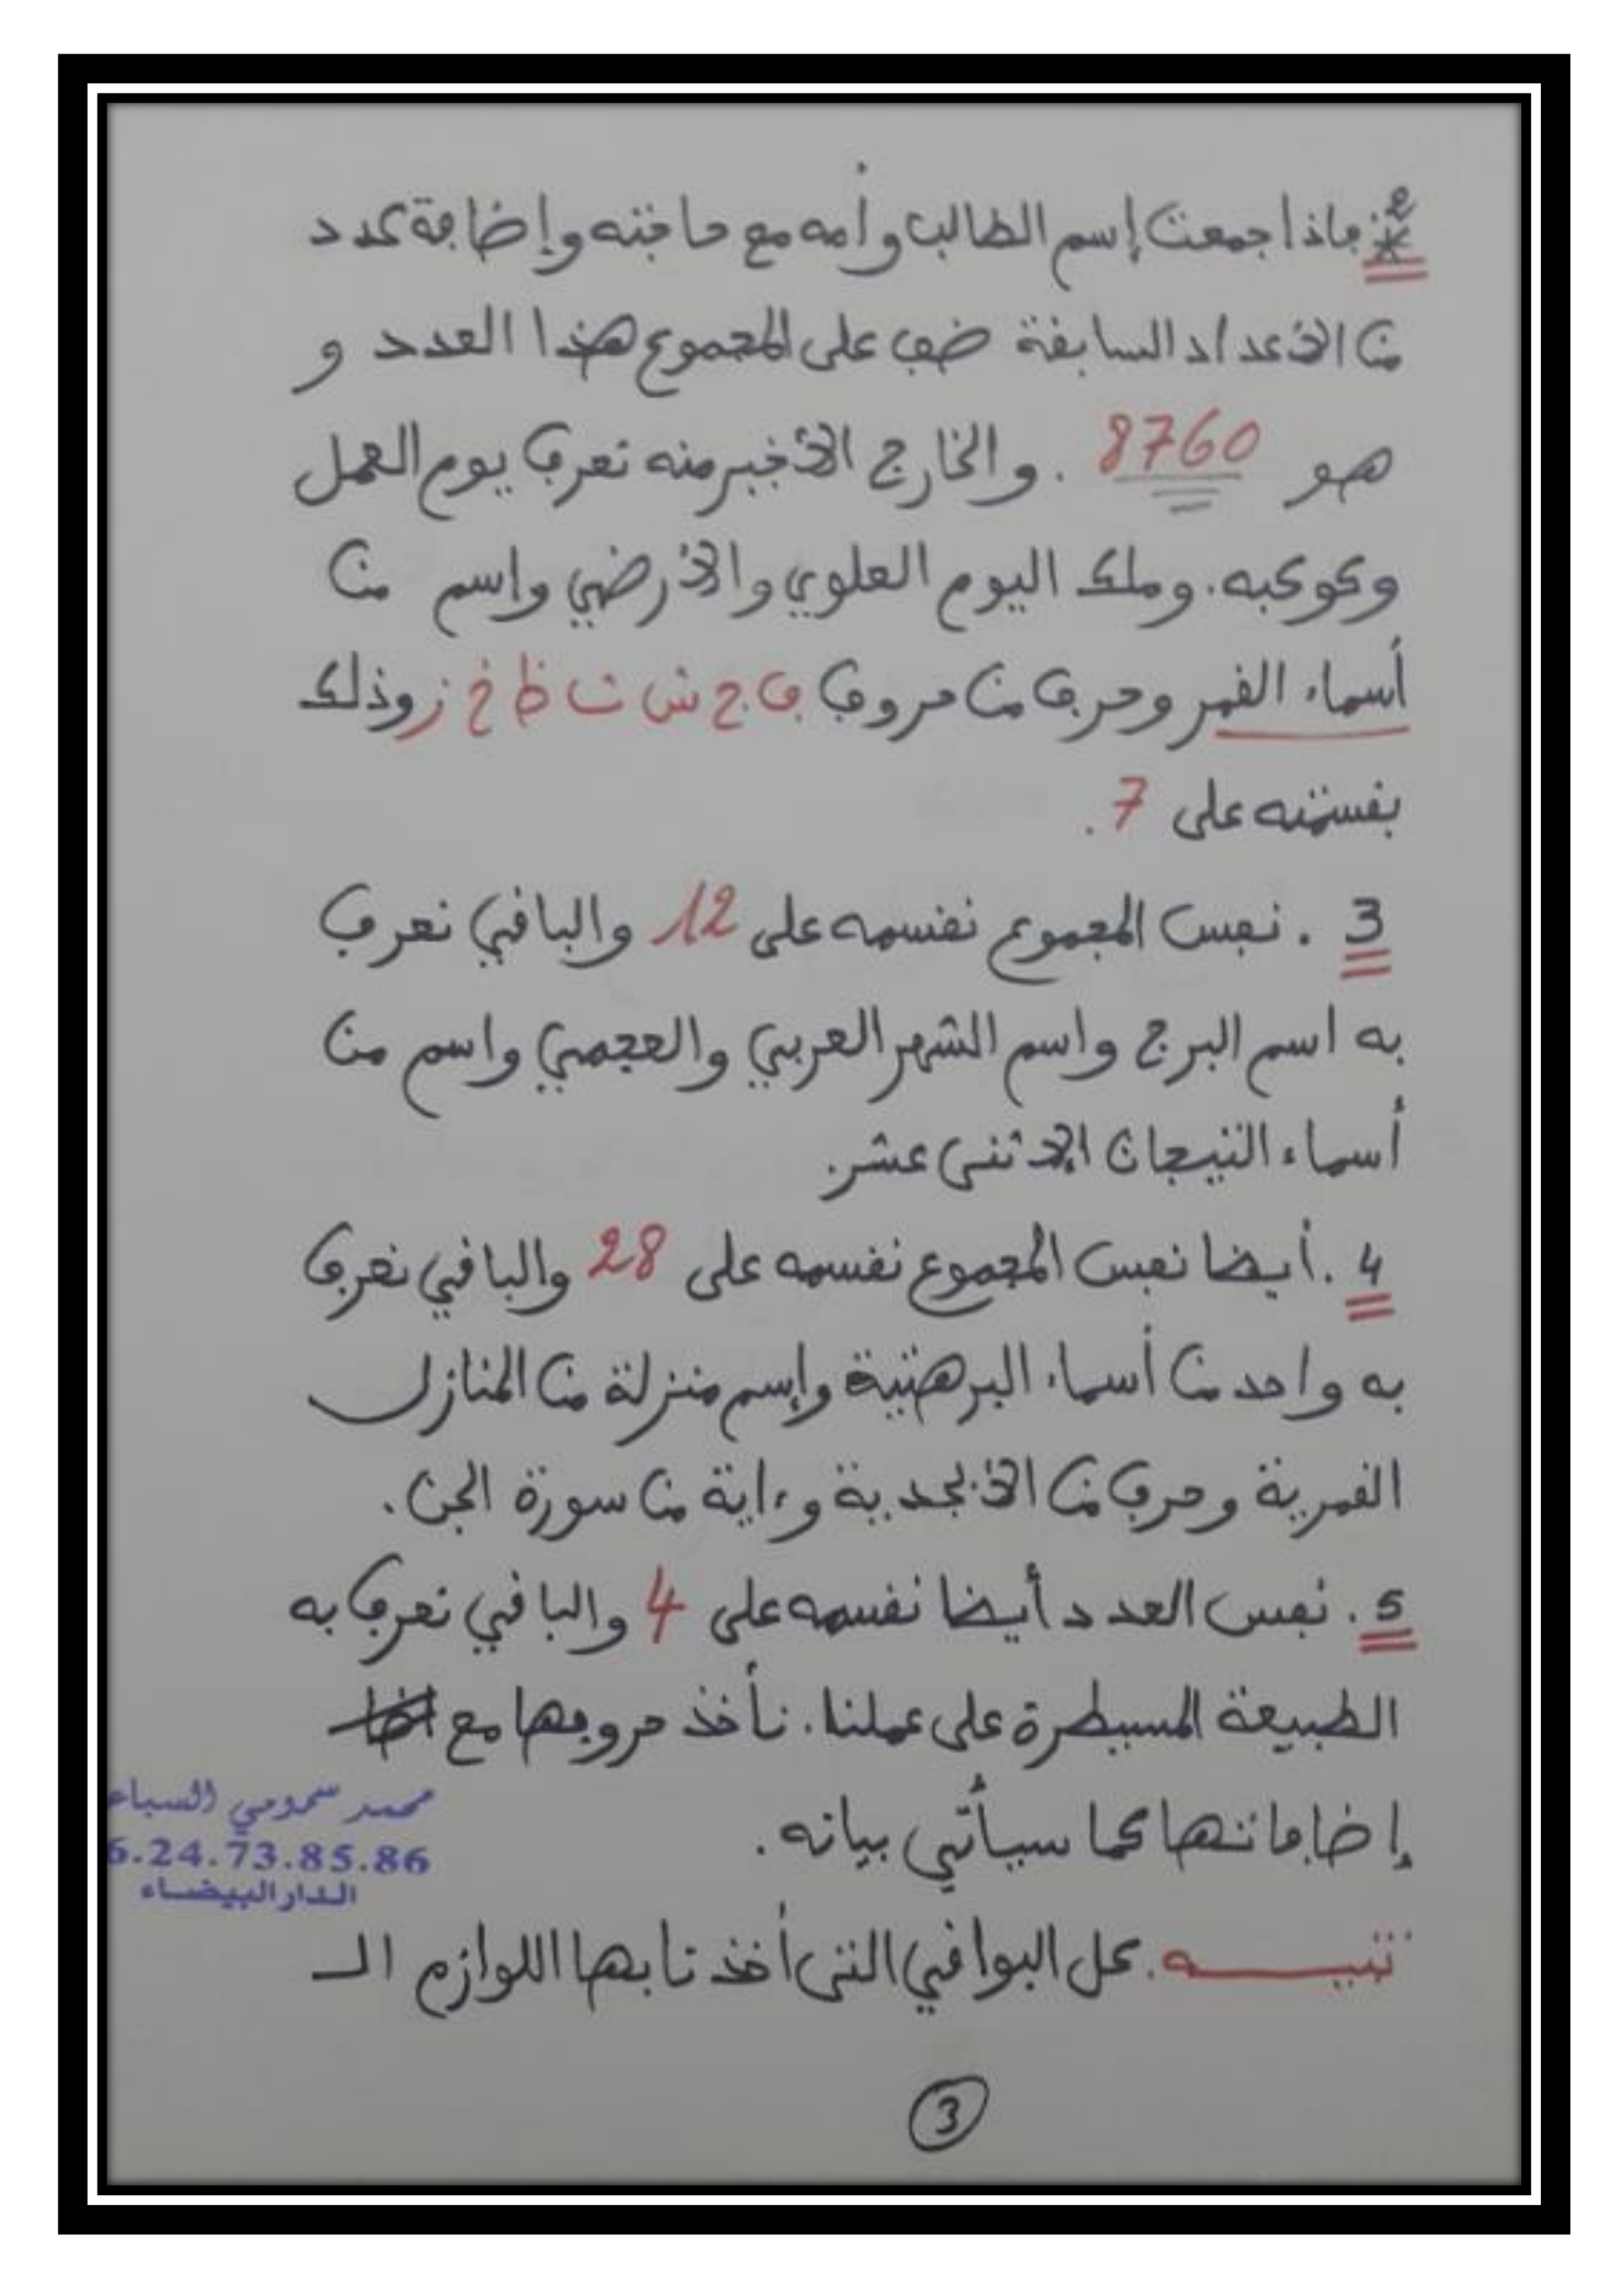 فإذا جمعت إسم الطالب وأمه مع حاجته وإضافة عدد
من الأعداد السابقة ضف على المجموع هذا العدد و
هو 8760 . والخارج الأخير منه نعرف يوم العمل
وكوكبه. وملك اليوم العلوي والأرضي واسم من
أسماء القمر وحرف من حروف ف ج ش ث ظ خ ز وذلك
بقسمته على 7 .
3 . نفس المجموع نقسمه على 12 والباقي نعرف
به اسم البرج واسم الشهر العربي والعجمي واسم من
أسماء التيجان الإثنى عشر.
4 . أيضا نفس المجموع نقسمه على 28 والباقي نعرف
به واحد من أسماء البرهتية وإسم منزلة من المنازل
القمرية وحرف من الأبجدية وءاية من سورة الجن.
5 . نفس العدد أيضا نقسمه على 4 والباقي نعرف به
الطبيعة المسيطرة على عملنا. نأخذ حروفها مع
إضافاتها كما سيأتي بيانه.
محمد سمومي السباع
6.24.73.85.86
الدار البيضاء
تنبيه. كل البواقي التى أخذنا بها اللوازم الـ
3